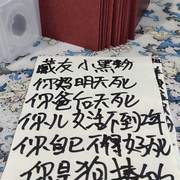 藏友小黑粉
你妈明天死
你爸后天死
你儿女活不到2年
你自己不得好死
你是狗